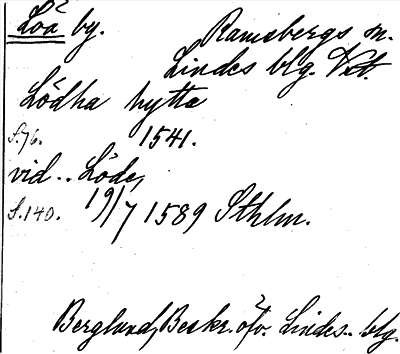 Löa by.
Ramsbergs sn.
Lindes blg. Vstl.
Lödha hytta
S.76. 1541.
vid .. Löde,
S.140. 19/7 1589 Sthlm.
Berglund, Beskr. öfv. Lindes.. blg.